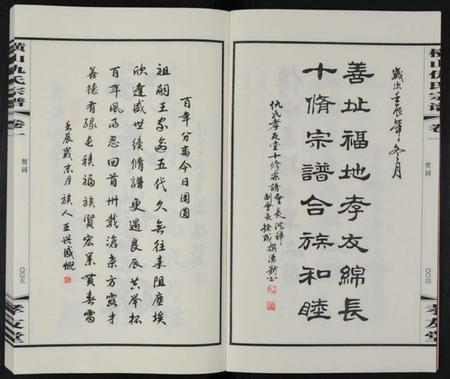 橫山仇氏宗譜
卷一
賀詞
〇〇四
孝友堂
歲次壬辰年冬月
善址福地孝友綿長
十脩宗譜合族和睦
仇氏孝友堂十修宗譜會會長
副會長
橫山仇氏宗譜
卷一
賀詞
〇〇五
孝友堂
百年分离今日團圓
祖嗣王家逾五代久無往来阻塵埃
欣逢盛世续脩譜更遇良辰共举杯
百年風雨忍回首卅载滄桑方露才
善德有緣長積福族賢宏業黄春雷
壬辰歲末月族人王兴盛慨